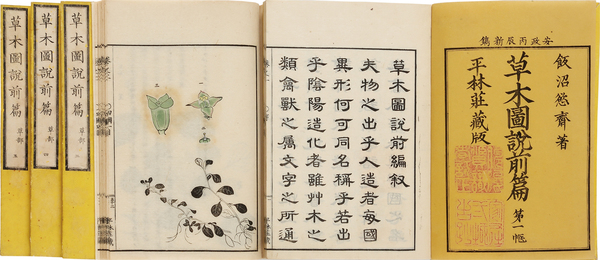 安政丙辰新鐫
飯沼慾齋著
草木圖說前篇 第一帙
平林莊藏版
草木圖說前編叙
夫物之出乎人造者每國
異形何可同名稱乎若出
乎陰陽造化者雖艸木之
類禽獸之屬文字之所通
一
二
草木圖說前篇 草部 三
草木圖說前篇 草部 四
草木圖說前篇 草部 五